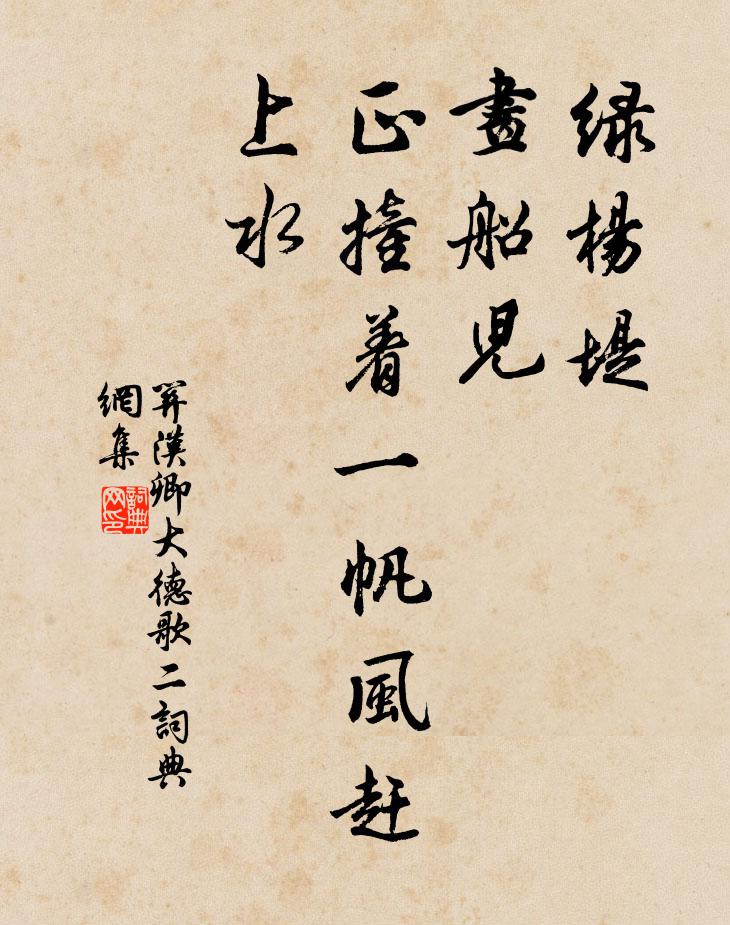 绿楊堤
畫船兒
正撞着一帆風赶
上水
關漢卿大德歌二詞典
網集
詞典
网印